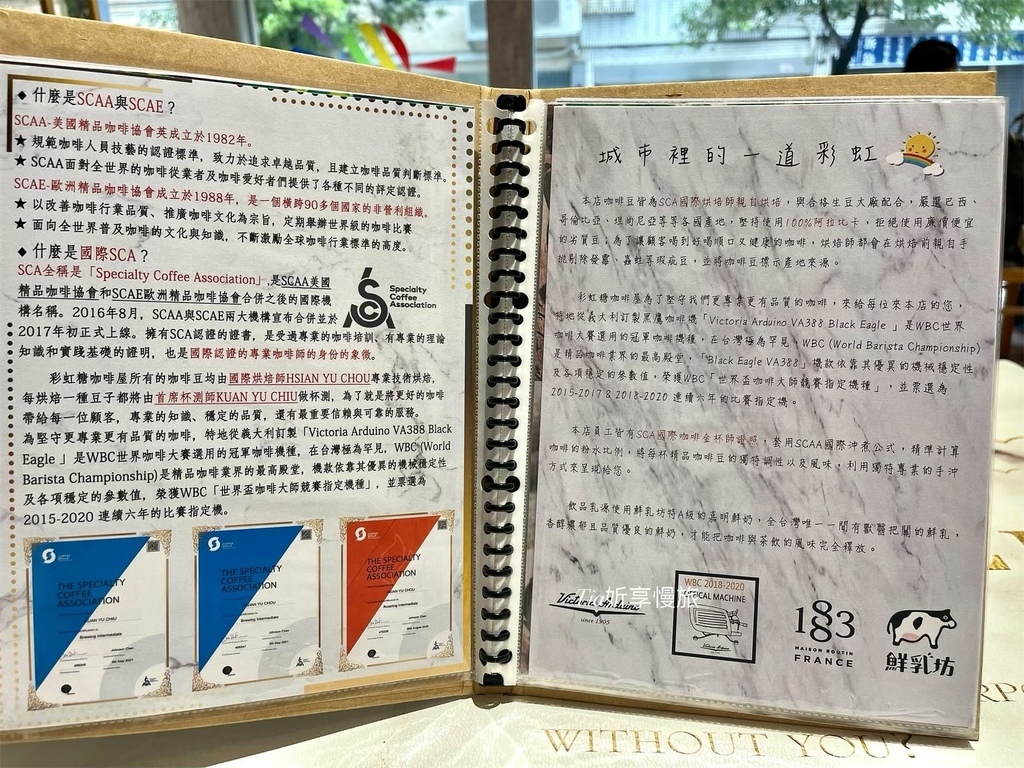 ◆ 什麼是SCAA與SCAE？
SCAA-美國精品咖啡協會英成立於1982年。
★ 規範咖啡人員技藝的認證標準，致力於追求卓越品質，且建立咖啡品質判斷標準。
★ SCAA面對全世界的咖啡從業者及咖啡愛好者們提供了各種不同的評定認證。
SCAE-歐洲精品咖啡協會成立於1988年，是一個橫跨90多個國家的非營利組織。
★ 以改善咖啡行業品質、推廣咖啡文化為宗旨，定期舉辦世界級的咖啡比賽
★ 面向全世界普及咖啡的文化與知識，不斷激勵全球咖啡行業標準的高度。
◆ 什麼是國際SCA？
SCA全稱是「Specialty Coffee Association」,是SCAA美國
精品咖啡協會和SCAE歐洲精品咖啡協會合併之後的國際機
構名稱。2016年8月，SCAA與SCAE兩大機構宣布合併並於
2017年初正式上線。擁有SCA認證的證書，是受過專業的培訓、有專業的理論
知識和實踐基礎的證明，也是國際認證的專業咖啡師的身份的象徵。
Specialty
Coffee
Association
彩虹糖咖啡屋所有的咖啡豆均由國際烘焙師HSIAN YU CHOU專業技術烘焙，
每烘焙一種豆子都將由首席杯測師KUAN YU CHIU做杯測，為了就是將更好的咖啡
帶給每一位顧客，專業的知識、穩定的品質，還有最重要信賴與可靠的服務。
為堅守更專業更有品質的咖啡，特地從義大利訂製「Victoria Arduino VA388 Black
Eagle 」是WBC世界咖啡大賽選用的冠軍咖啡機種，在台灣極為罕見，WBC (World
Barista Championship)是精品咖啡業界的最高殿堂，機款依靠其優異的機械穩定性
及各項穩定的參數值，榮獲WBC「世界盃咖啡大師競賽指定機種」，並票選為
2015-2020 連續六年的比賽指定機。
THE SPECIALTY
COFFEE
ASSOCIATION
KUAN YU CHIU
Brewing Intermediate
THE SPECIALTY
COFFEE
ASSOCIATION
Brewing Intermediate
THE SPECIALTY
COFFEE
ASSOCIATION
Roasting Intermediate
城市裡的一道彩虹
本店咖啡豆皆為SCA國際烘焙師親自烘焙，與合格生豆大廠配合，嚴選巴西、
哥倫比亞、坦尚尼亞等等各國產地，堅持使用100%阿拉比卡，拒絕使用廉價便宜
的劣質豆；為了讓顧客喝到好喝順口又健康的咖啡，烘焙師都會在烘焙前親自手
挑剔除發霉、蟲蛀等瑕疵豆，並將咖啡豆標示產地來源。
彩虹糖咖啡屋為了堅守我們更專業更有品質的咖啡，來給每位來本店的您，
特地從義大利訂製黑鷹咖啡機「Victoria Arduino VA388 Black Eagle 」是WBC世界
咖啡大賽選用的冠軍咖啡機種，在台灣極為罕見，WBC (World Barista Championship)
是精品咖啡業界的最高殿堂，「Black Eagle VA388」機款依靠其優異的機械穩定性
及各項穩定的參數值，榮獲WBC「世界盃咖啡大師競賽指定機種」，並票選為
2015-2017 & 2018-2020 連續六年的比賽指定機。
本店員工皆有SCA國際咖啡金杯師證照，套用SCAA國際沖煮公式，精準計算
咖啡的粉水比例，將每杯精品咖啡豆的獨特調性以及風味，利用獨特專業的手沖
方式來呈現給您。
飲品乳源使用鮮乳坊特A級的嘉明鮮奶，全台灣唯一一間有獸醫把關的鮮乳，
香醇濃郁且品質優良的鮮奶，才能把咖啡與茶飲的風味完全釋放。
Victoria Arduino
since 1905
WBC 2018-2020
MACHINE
Tia妡享慢旅
1883
MAISON ROUTIN
FRANCE
鮮乳坊
WITHOUT YOU?